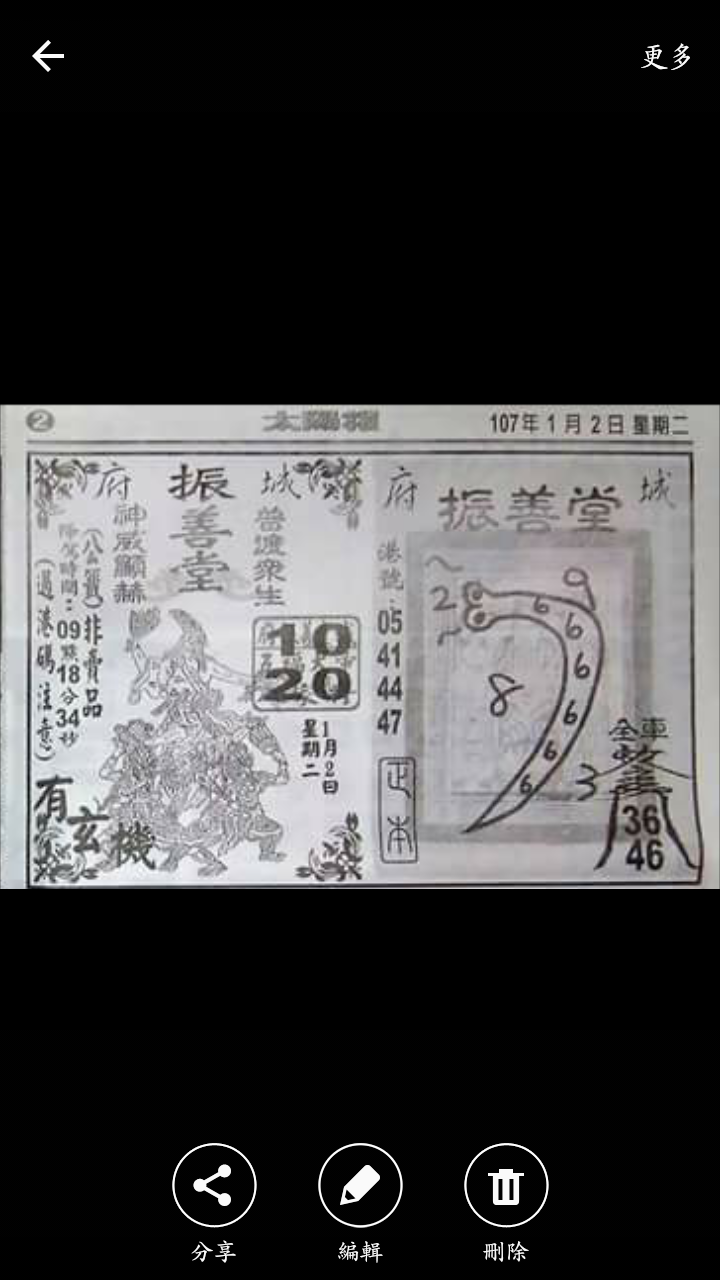 更多
❷
太陽報
107年1月2日 星期二
府城
振善堂
神威顯赫
普渡眾生
降駕時間：09點18分34秒
非賣品
(過港碼注意)
10
20
1月2日
星期二
有玄機
府城
振善堂
港號：
05
41
44
47
正本
2
9
6
6
6
6
6
6
8
3
全車
36
46
分享
編輯
刪除